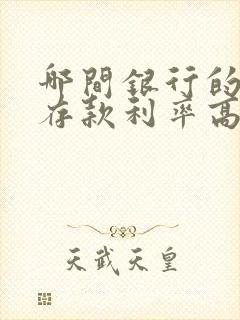 哪間銀行的
存款利率高
天武天皇